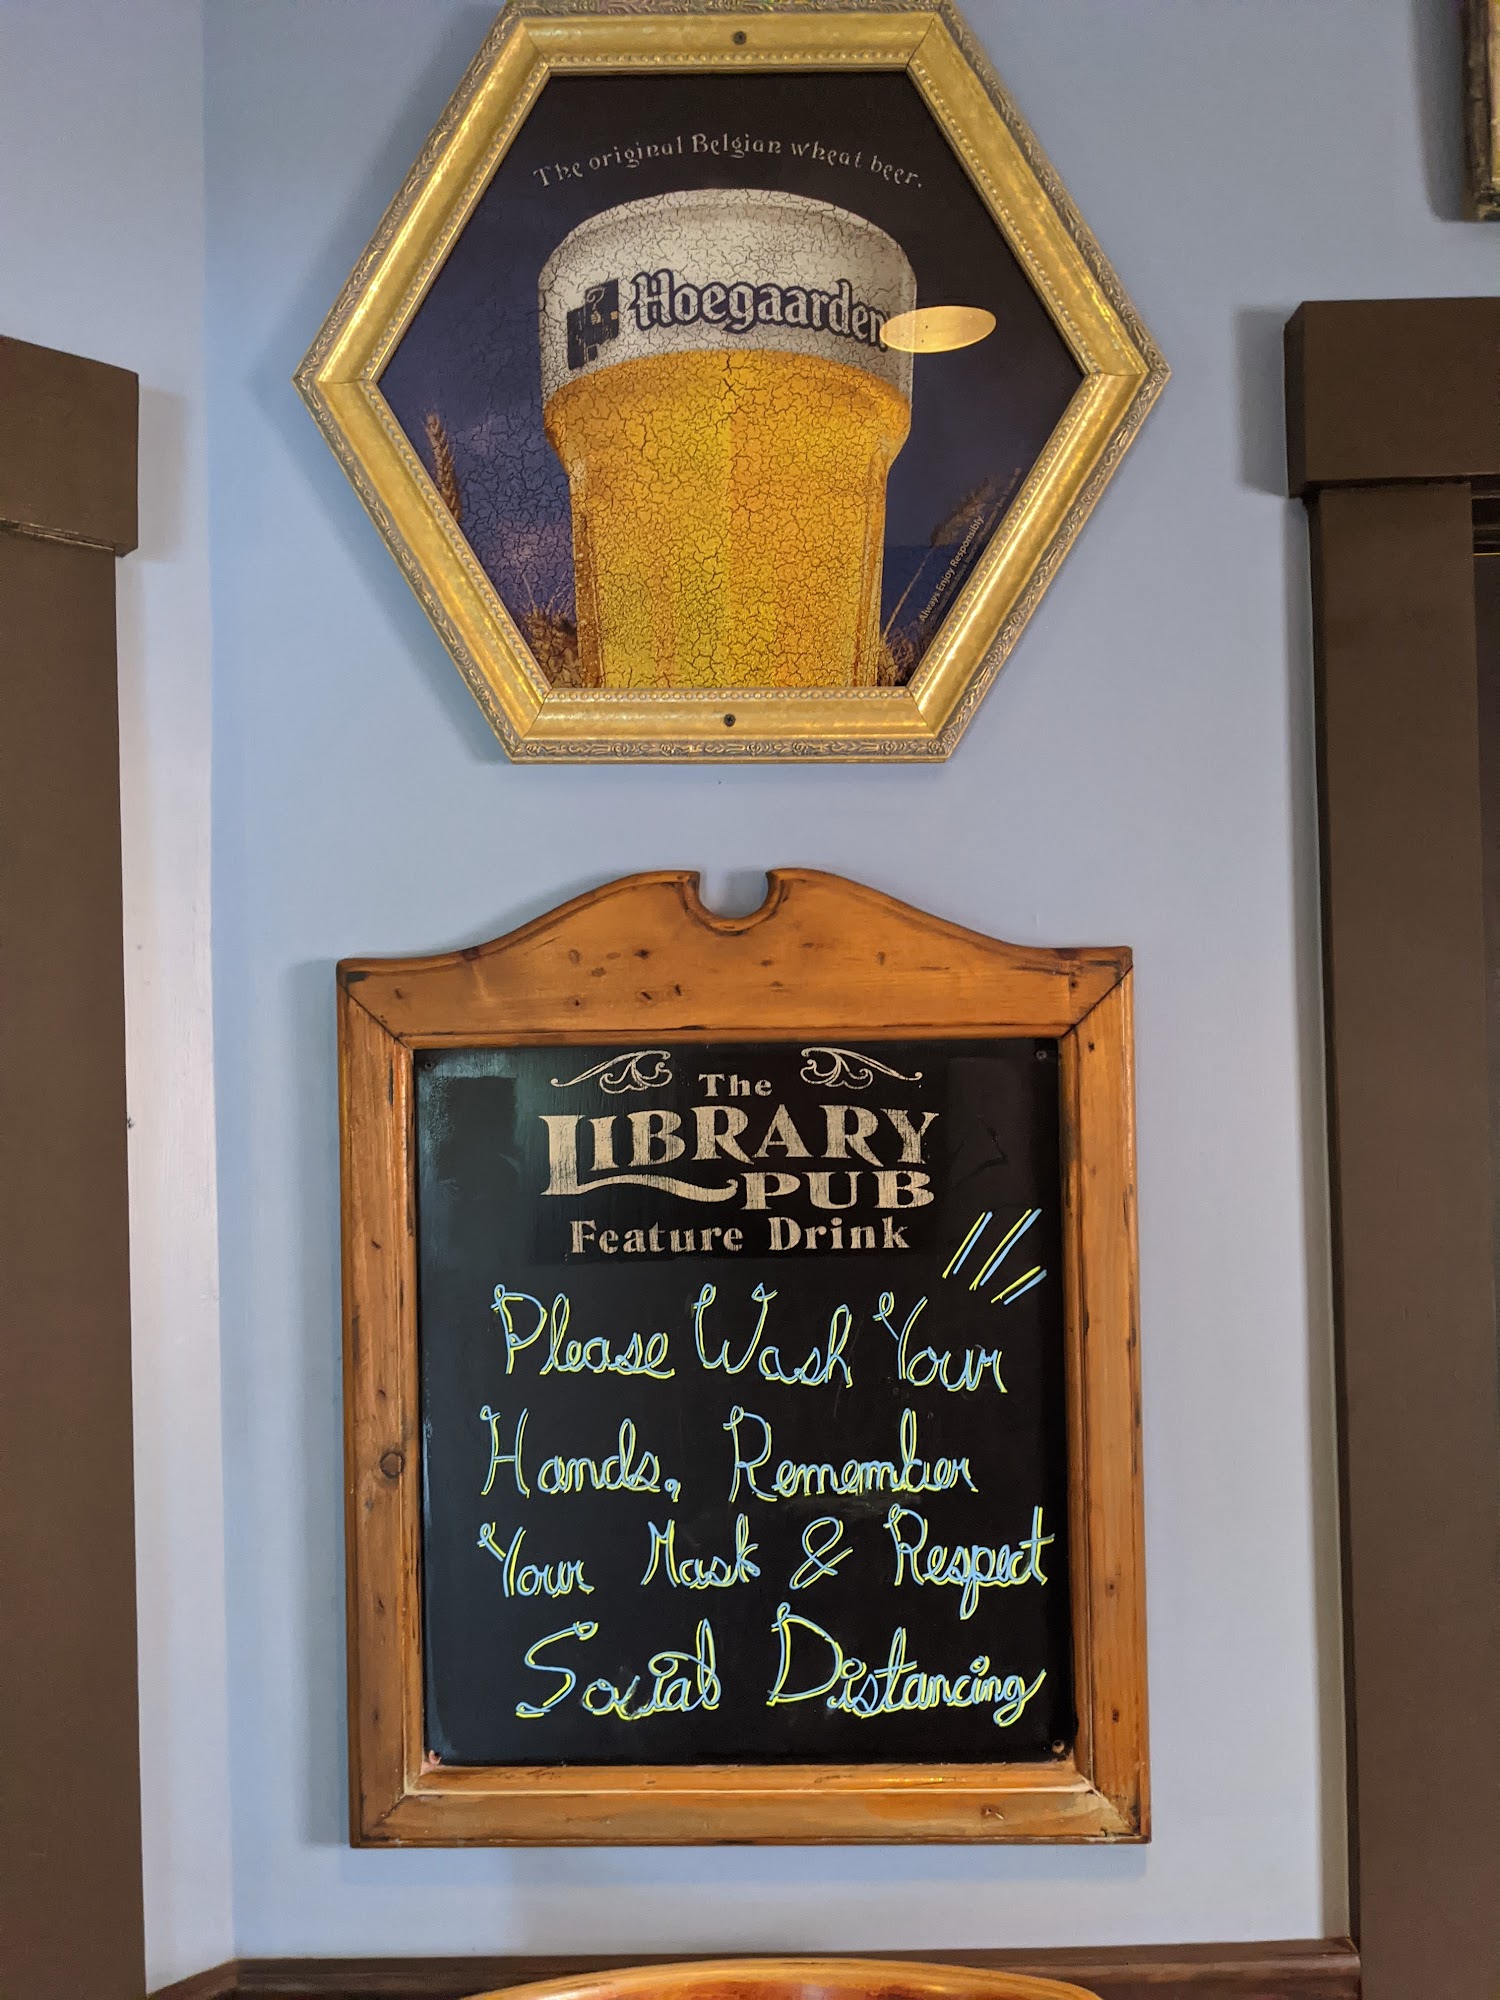 The original Belgian wheat beer.
Hoegaarden
Always Enjoy Responsibly.
The
LIBRARY
PUB
Feature Drink
Please Wash Your
Hands, Remember
Your Mask & Respect
Social Distancing